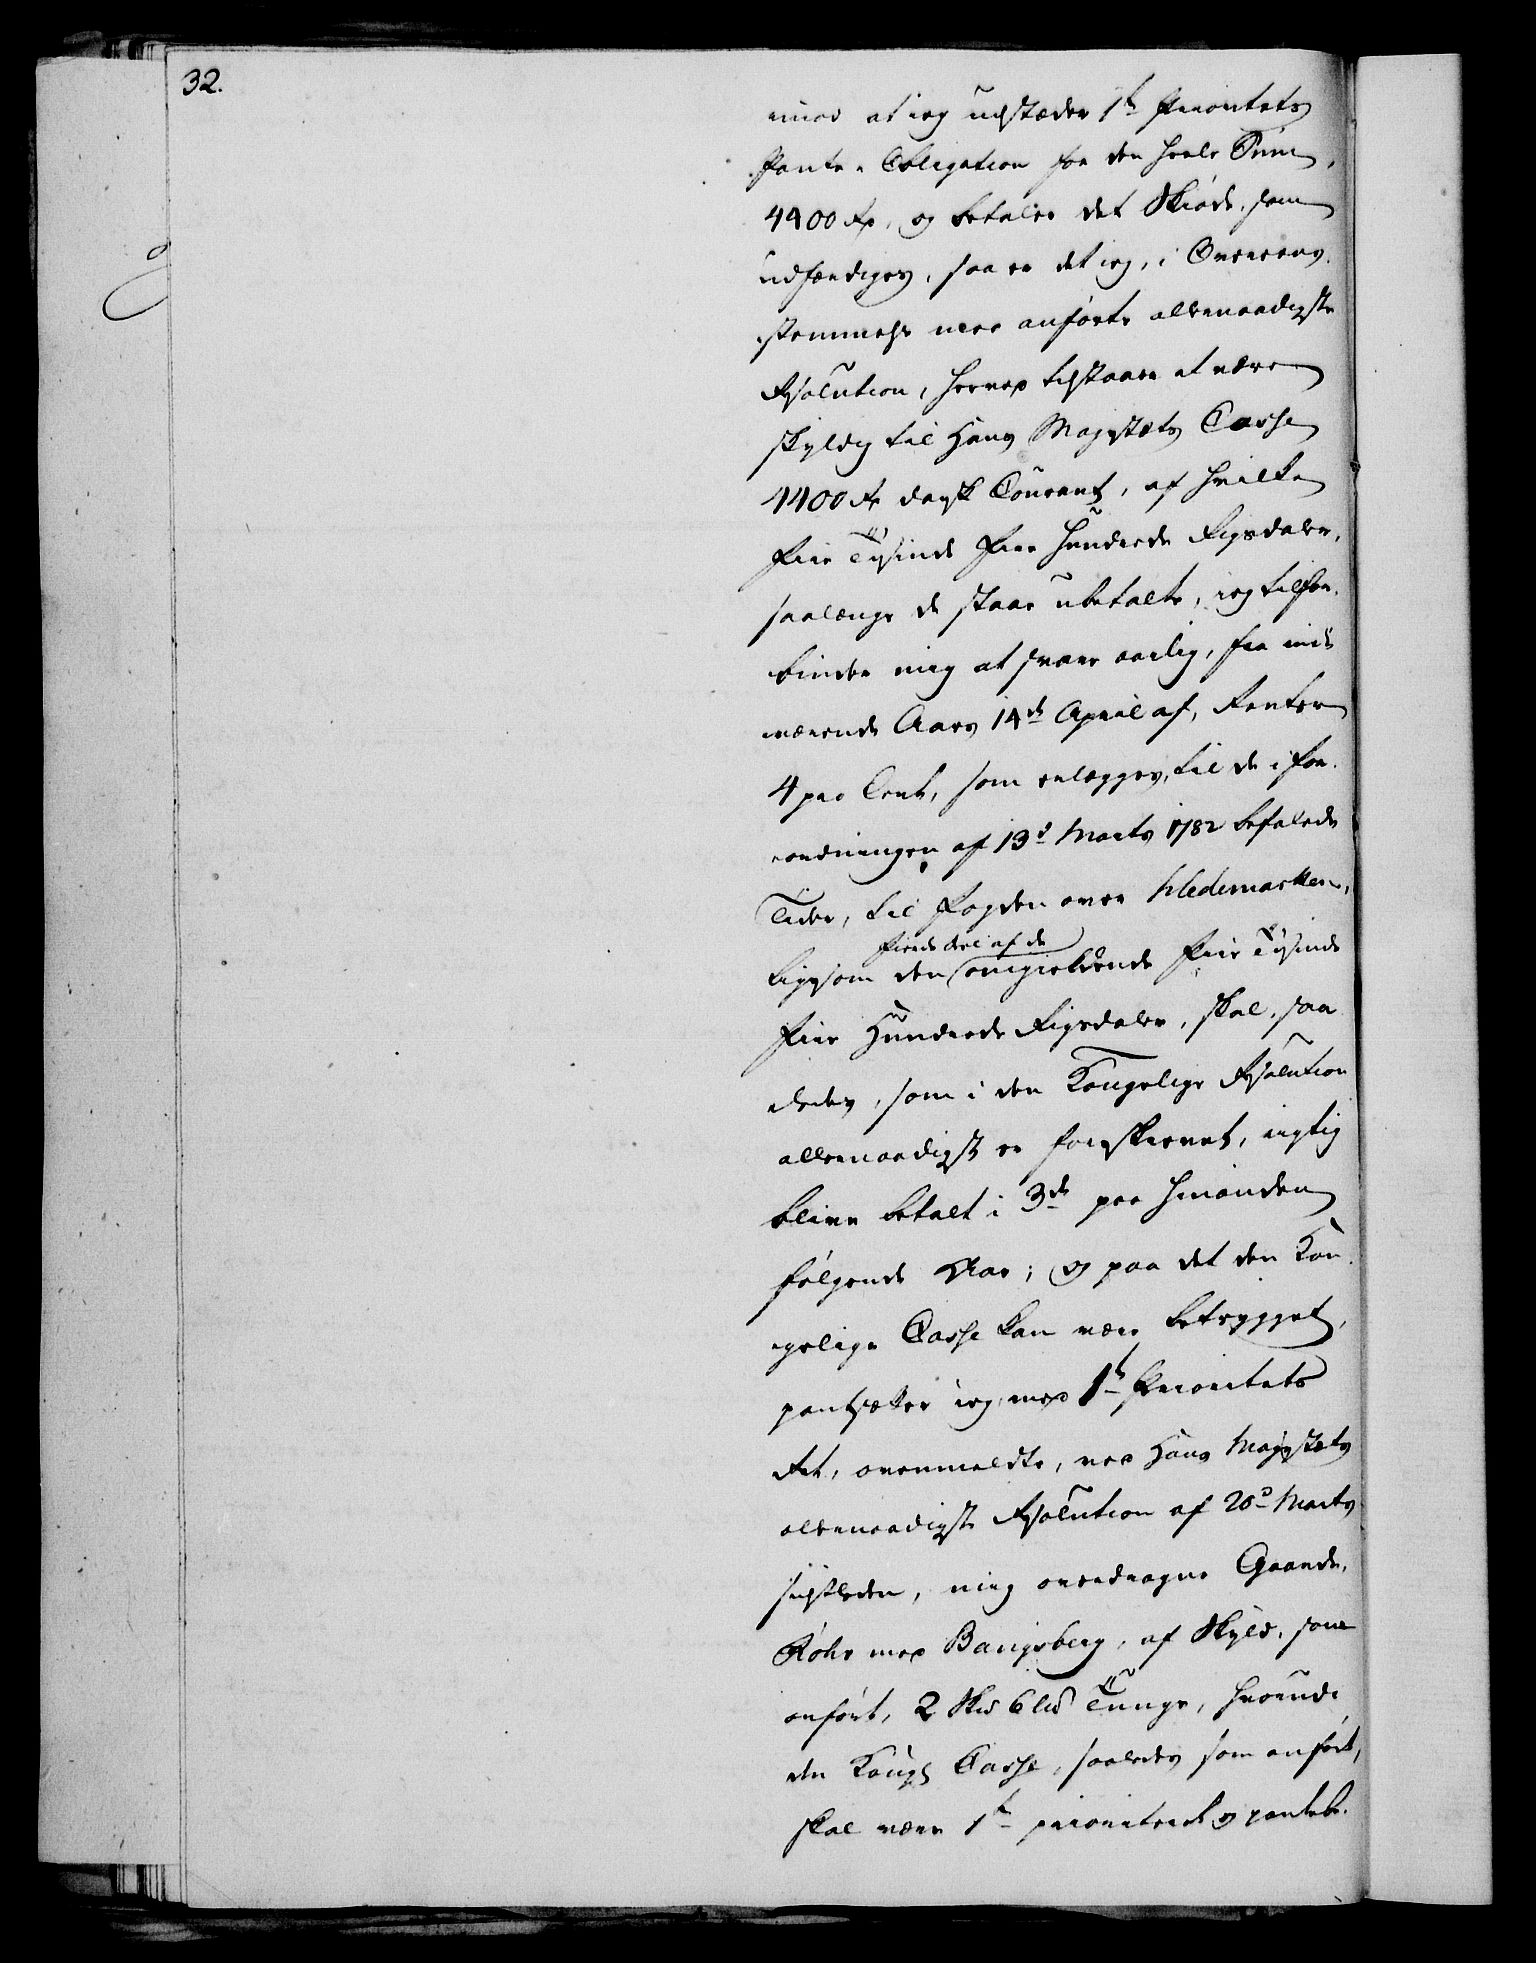 32.
imod at jeg udstæder 1te Prioritets
Pante-Obligation for den heele Sum,
4400 Rd, og betaler det Skiöde, som
udfærdiges, saa er det jeg, i Overeens-
stemmelse med anförte allernaadigste
Resolution, herved tilstaaer at være
skyldig til Hans Majestets Casse
4400 Rd dansk Courant, af hvilke
Fiire Tusinde Fiire Hundrede Rigsdaler,
saalænge de staae ubetalte, jeg tilfor-
binder mig at svare aarlig, fra inde-
værende Aars 14de April af, Renter
4 pro Cent, som erlægges, til de i For-
ordningen af 13de Marts 1782 befalede
Tider, til Fogden over Hedemarken,
fierde deel af de
ligesom den omgieldende Fiire Tusinde
Fiire Hundrede Rigsdaler, skal, saa-
ledes, som i den Kongelige Resolution
allernaadigst er foreskrevet, rigtig
blive betalt i 3de paa hinanden
følgende Aar; og paa det den Kon-
gelige Casse kan være betrygget,
pantsætter jeg med 1te Prioritets
Ret, ovenmeldte, ved Hans Majestets
allernaadigste Resolution af 20de Marts
sidstleden, mig overdragne Gaarde,
Röhr med Bangsberg, af Skyld, som
anfört, 2 Skd 6 Lisd Tunge, hvorudi
den Kongl Casse, saaledes som anfört,
skal være 1te prioriteret og panteb-